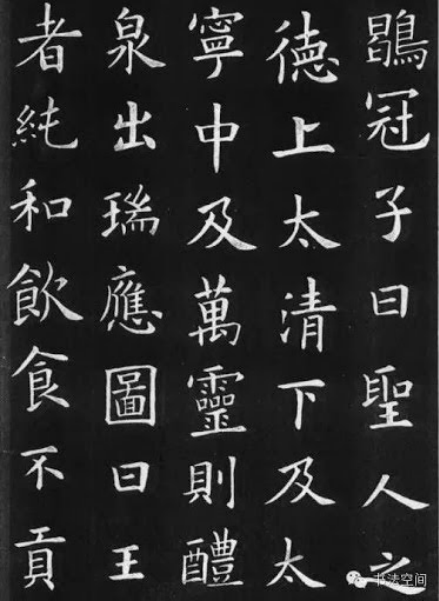 鶡冠子曰聖人之
德上太清下及太
寧中及萬靈則醴
泉出瑞應圖曰王
者純和飲食不貢
书法空间